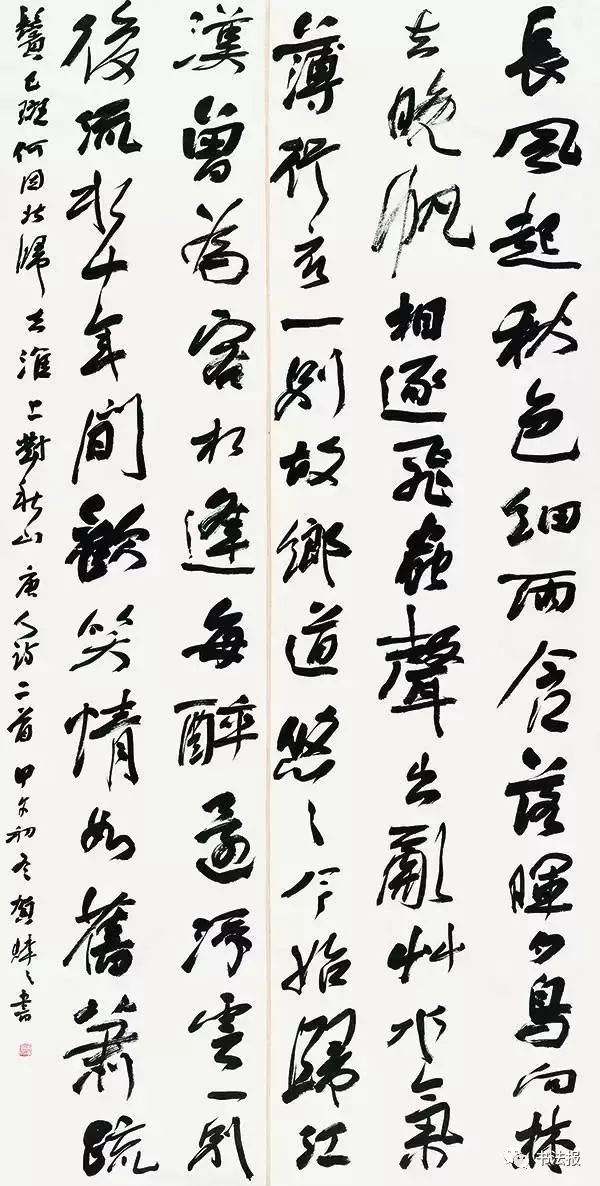 長風起秋色細雨含落暉夕鳥向林
去晚帆相逐飛蟲聲出亂艸水氣
薄行衣一別故鄉道悠〻今始歸江
漢曾為客相逢每醉還浮雲一別
後流水十年間歡笑情如舊蕭疏
鬢已斑何因北歸去淮上對秋山 唐人詩二首 甲午初冬賀書
书法报